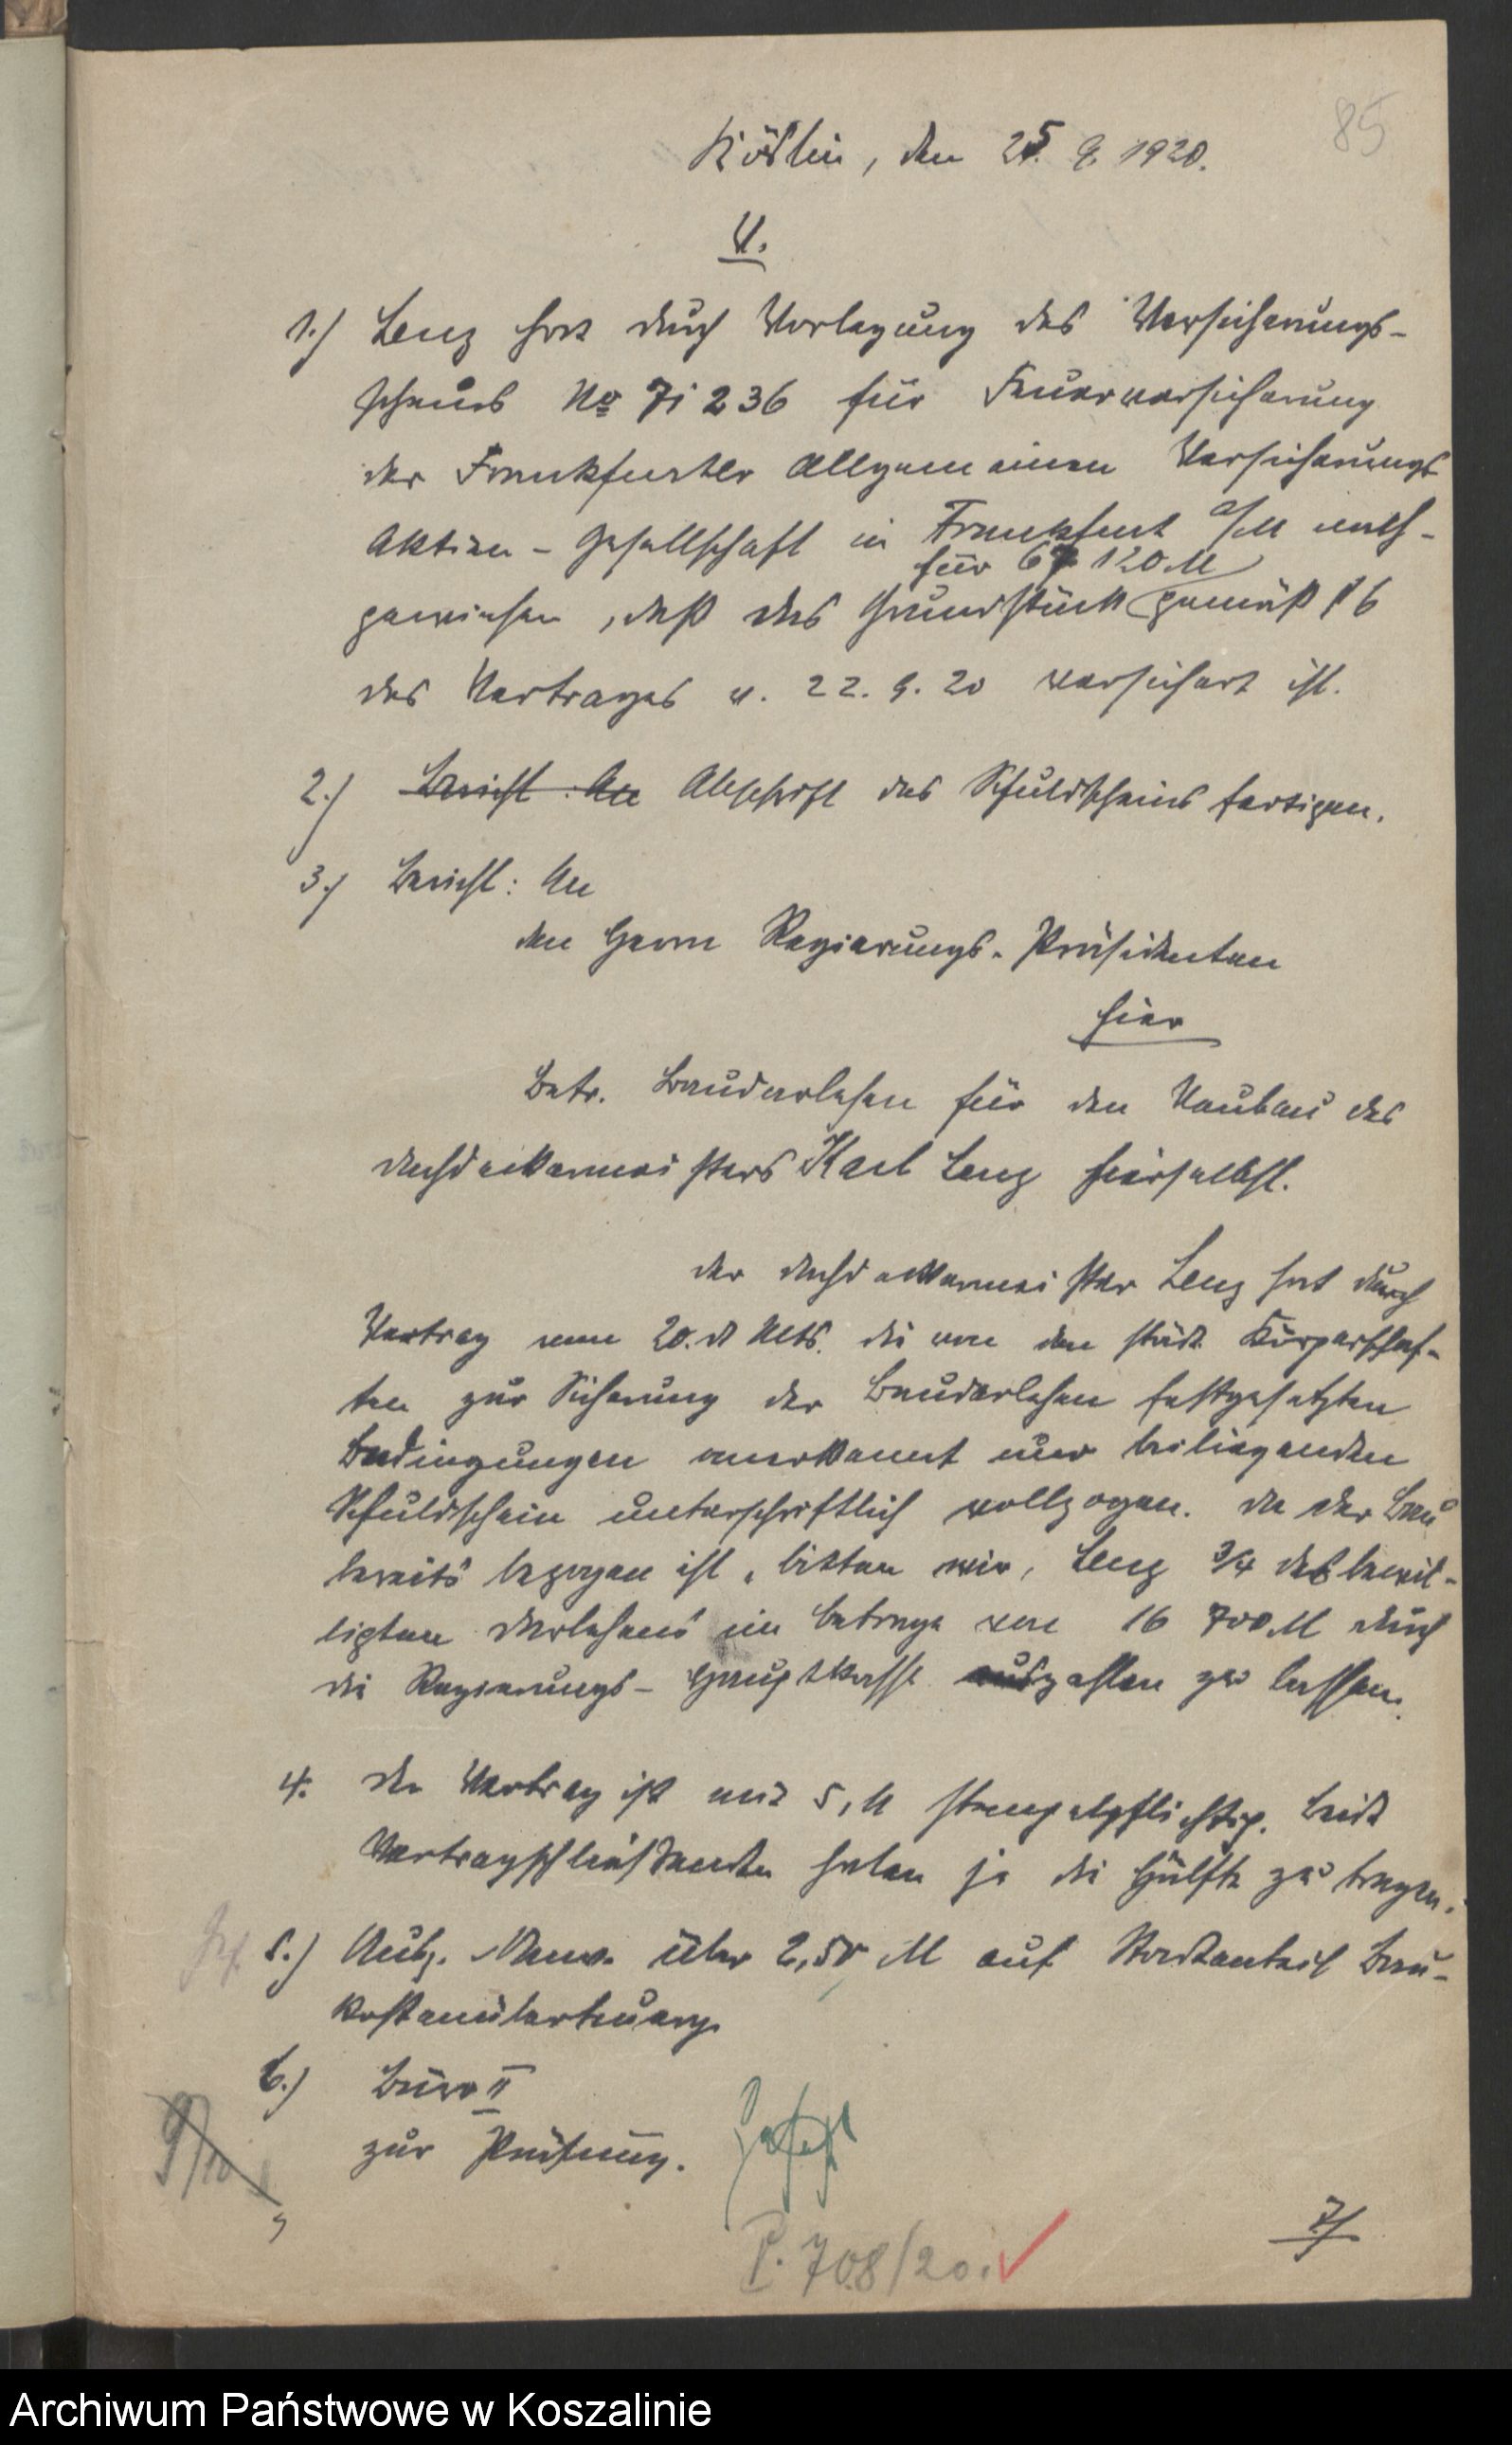 85
Köslin, den 25. 9. 1920.
V.
1.) Lenz hat durch Vorlegung des Versicherungs-
scheins No 71 236 für Feuerversicherung
der Frankfurter Allgemeinen Versicherungs
Aktien-Gesellschaft in Frankfurt a/M nach-
für 67 120 M
gewiesen, daß das Grundstück gemäß § 6
des Vertrages v. 22. 9. 20 versichert ist.
2.) Bericht: An Abschrift des Schuldscheins fertigen.
3.) Bericht: An
den Herrn Regierungs-Präsidenten
hier
Betr. Baudarlehen für den Neubau des
Dachdeckermeisters Karl Lenz hierselbst.
Der Dachdeckermeister Lenz hat durch
Vertrag vom 20. d Mts. die von den städt. Körperschaf-
ten zur Sicherung der Baudarlehen festgesetzten
Bedingungen anerkannt und beiliegenden
Schuldschein unterschriftlich vollzogen. Da der Bau
bereits bezogen ist, bitten wir, Lenz 3/4 des bewil-
ligten Darlehens im Betrage von 16 700 M durch
die Regierungs-Hauptkasse auszahlen zu lassen.
4. Der Vertrag ist mit 5 M stempelpflichtig. Beide
Vertragschließenden haben je die Hälfte zu tragen.
5.) Ausg. Anw. über 2,50 M auf Stadtanteil Bau-
kostenüberteuerg.
6.) Büro II
zur Prüfung.
9/10
P. 708/20.